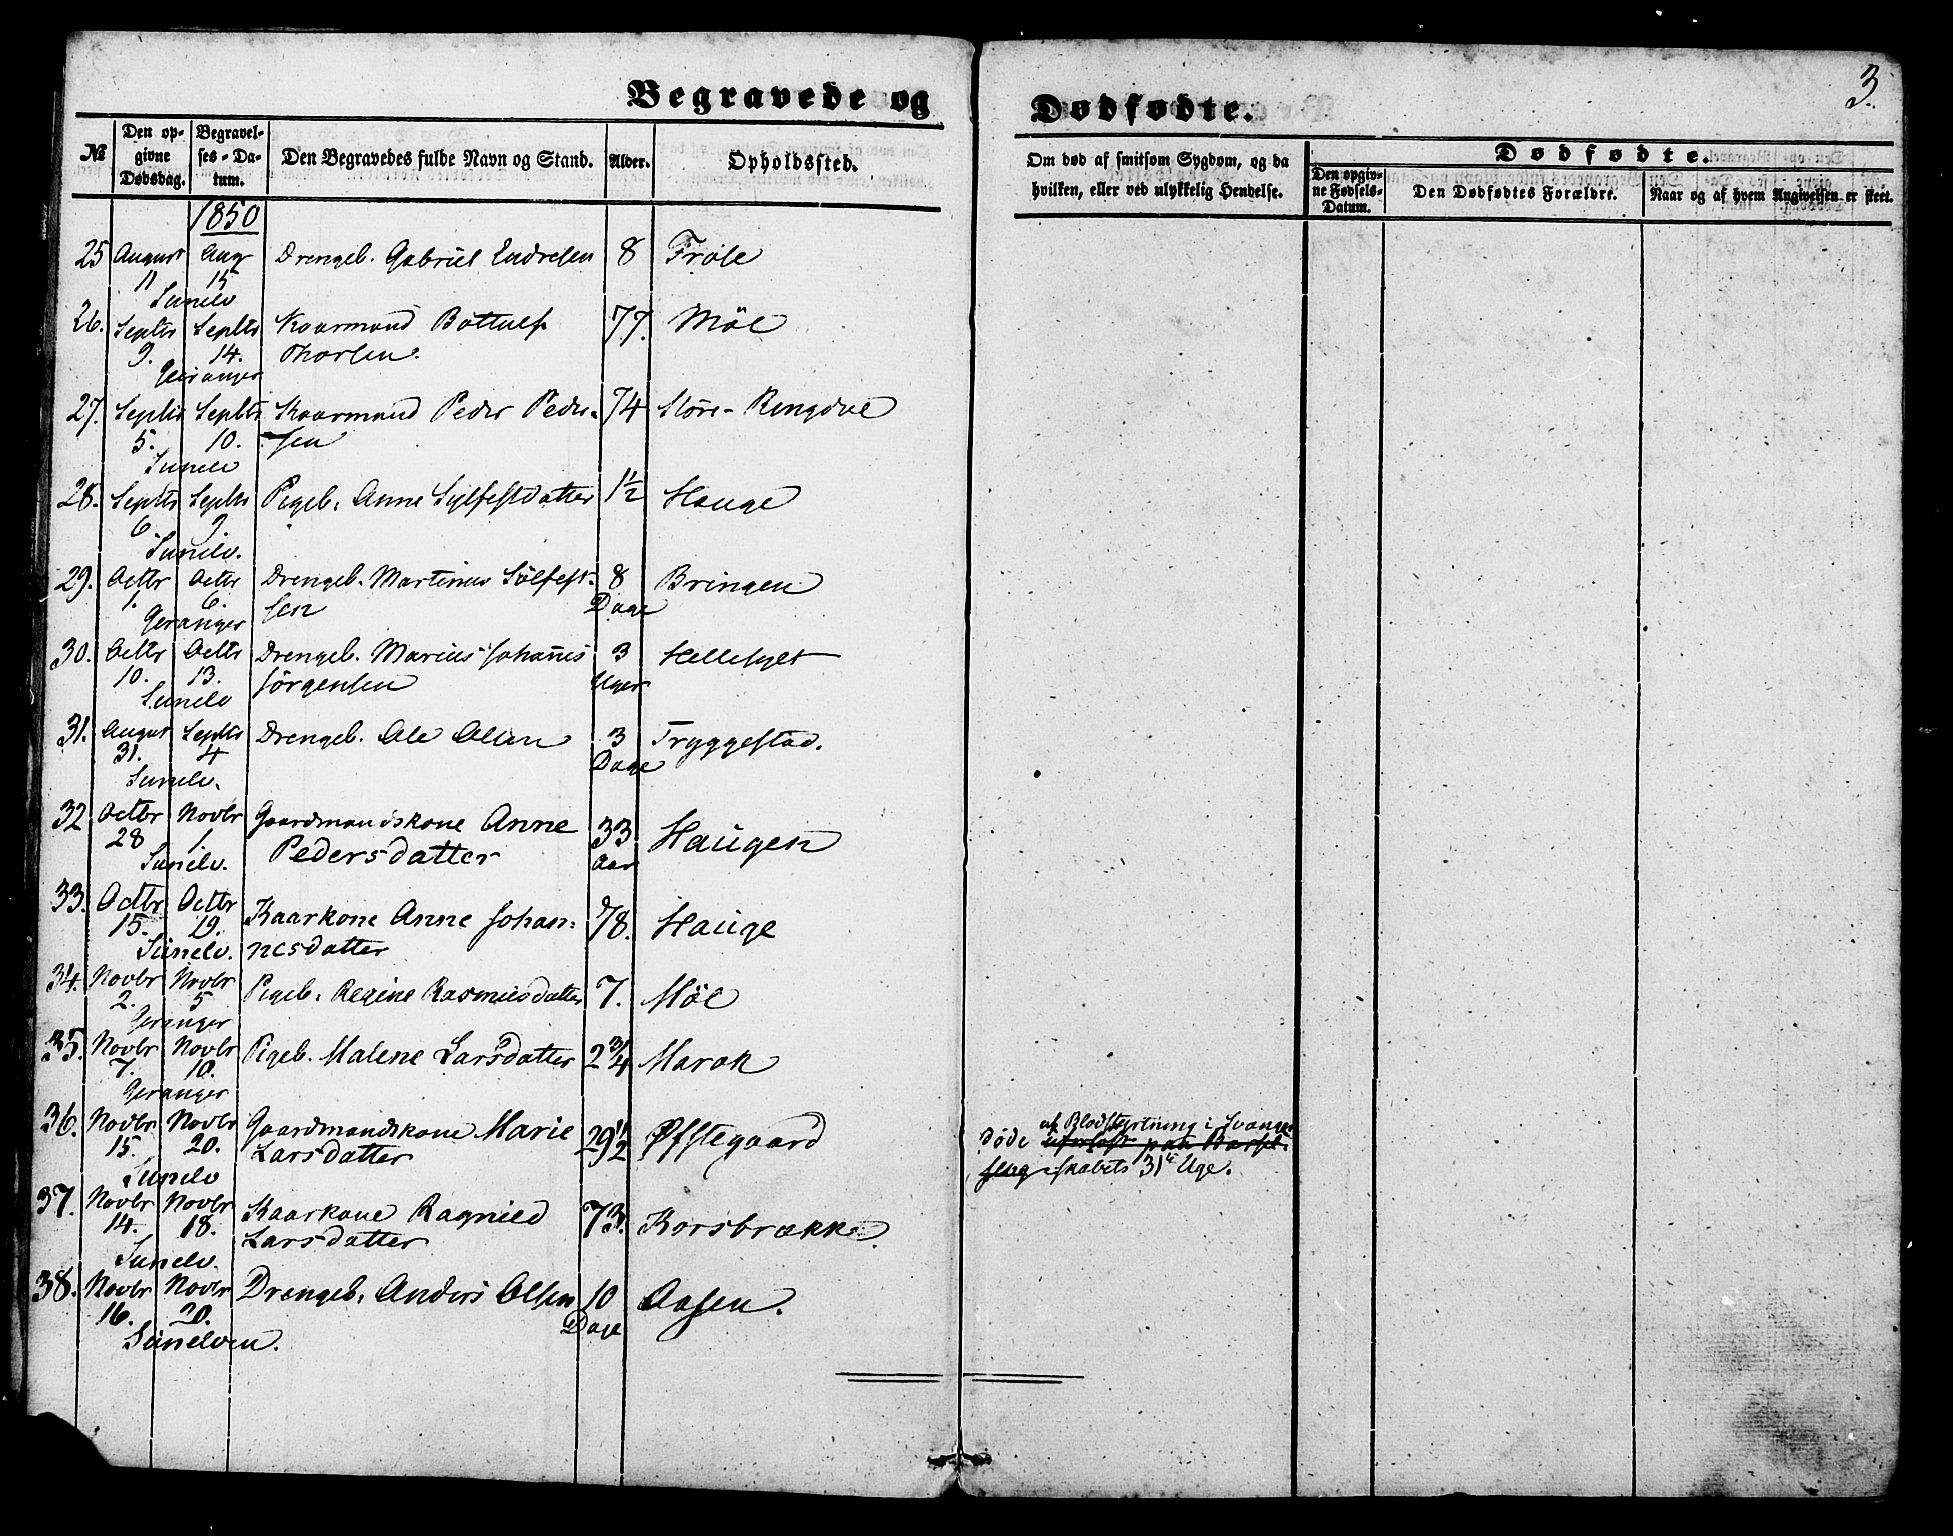 3.
Begravede og
Dødfødte.
№
Den op-
givne
Dødsdag.
Begravel-
ses-Da-
tum.
Den Begravedes fulde Navn og Stand.
Alder.
Opholdssted.
Om død af smitsom Sygdom, og da
hvilken, eller ved ulykkelig Hendelse.
Dødfødte.
Den opgiv-
ne Fødsels-
Datum.
Den Dødfødtes Forældre.
Naar og af hvem Angivelsen er skeet.
1850
25 August Aug Drengeb. Gabriel Endresen 8 Frøse
11 15
Sunelv
26. Septbr Septbr Kaarmand Bottulf 77. Møl
9. 14. Thorsen.
Geiranger
27. Septbr Septbr Kaarmand Peder Peder- 74 Støre-Ringdal
5. 10. sen
Sunelv
28. Septbr Septbr Pigeb. Anne Sylfestdatter 1½ Hauge
6. 9.
Sunelv.
29. Octbr Octbr Drengeb. Martinus Sölfest- 8 Bringen
1. 6. sen Dage
Geranger
30. Octbr Octbr Drengeb. Marius Johañes 3 Hellesylt
10. 13. Jörgensen Uger
Sunelv
31. August Septbr Drengeb. Ole Olsen 3 Tryggestad.
31. 4 Dage
Sunelv.
32 Octbr Novbr Gaardmandskone Anne 33 Haugen
28 1. Pedersdatter Aar
Sunelv.
33. Octbr Octbr Kaarkone Anne Johan- 78. Hauge
15. 19. nesdatter
Sünelv.
34. Novbr Novbr Pigeb. Regine Rasmusdatter 7. Møl
2. 5
Geranger
35. Novbr Novbr Pigeb. Malene Larsdatter 2¾ Marok
7. 10.
Geranger
36. Novbr Novbr Gaardmandskone Marie 29½ Øfstegaard
15. 20. Larsdatter
Sunelv
af Blodstyrtning i Svanger
døde uforløst paa Barsel-
seng -skabets 31te Uge.
37. Novbr Novbr Kaarkone Ragnild 73. Korsbrække.
14. 18. Larsdatter
Sunelv.
38. Novbr Novbr Drengeb. Anders Olsen 10 Aasen.
16. 20. Dage
Sünelven.